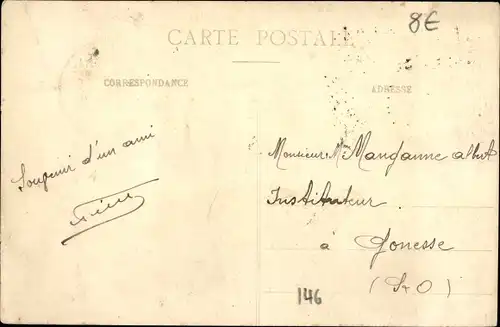 8€
CARTE POSTALE
CORRESPONDANCE
ADRESSE
Souvenir d'un ami
Monsieur Mme Manganne Albert
Instituteur
à Gonesse
(S+O)
146